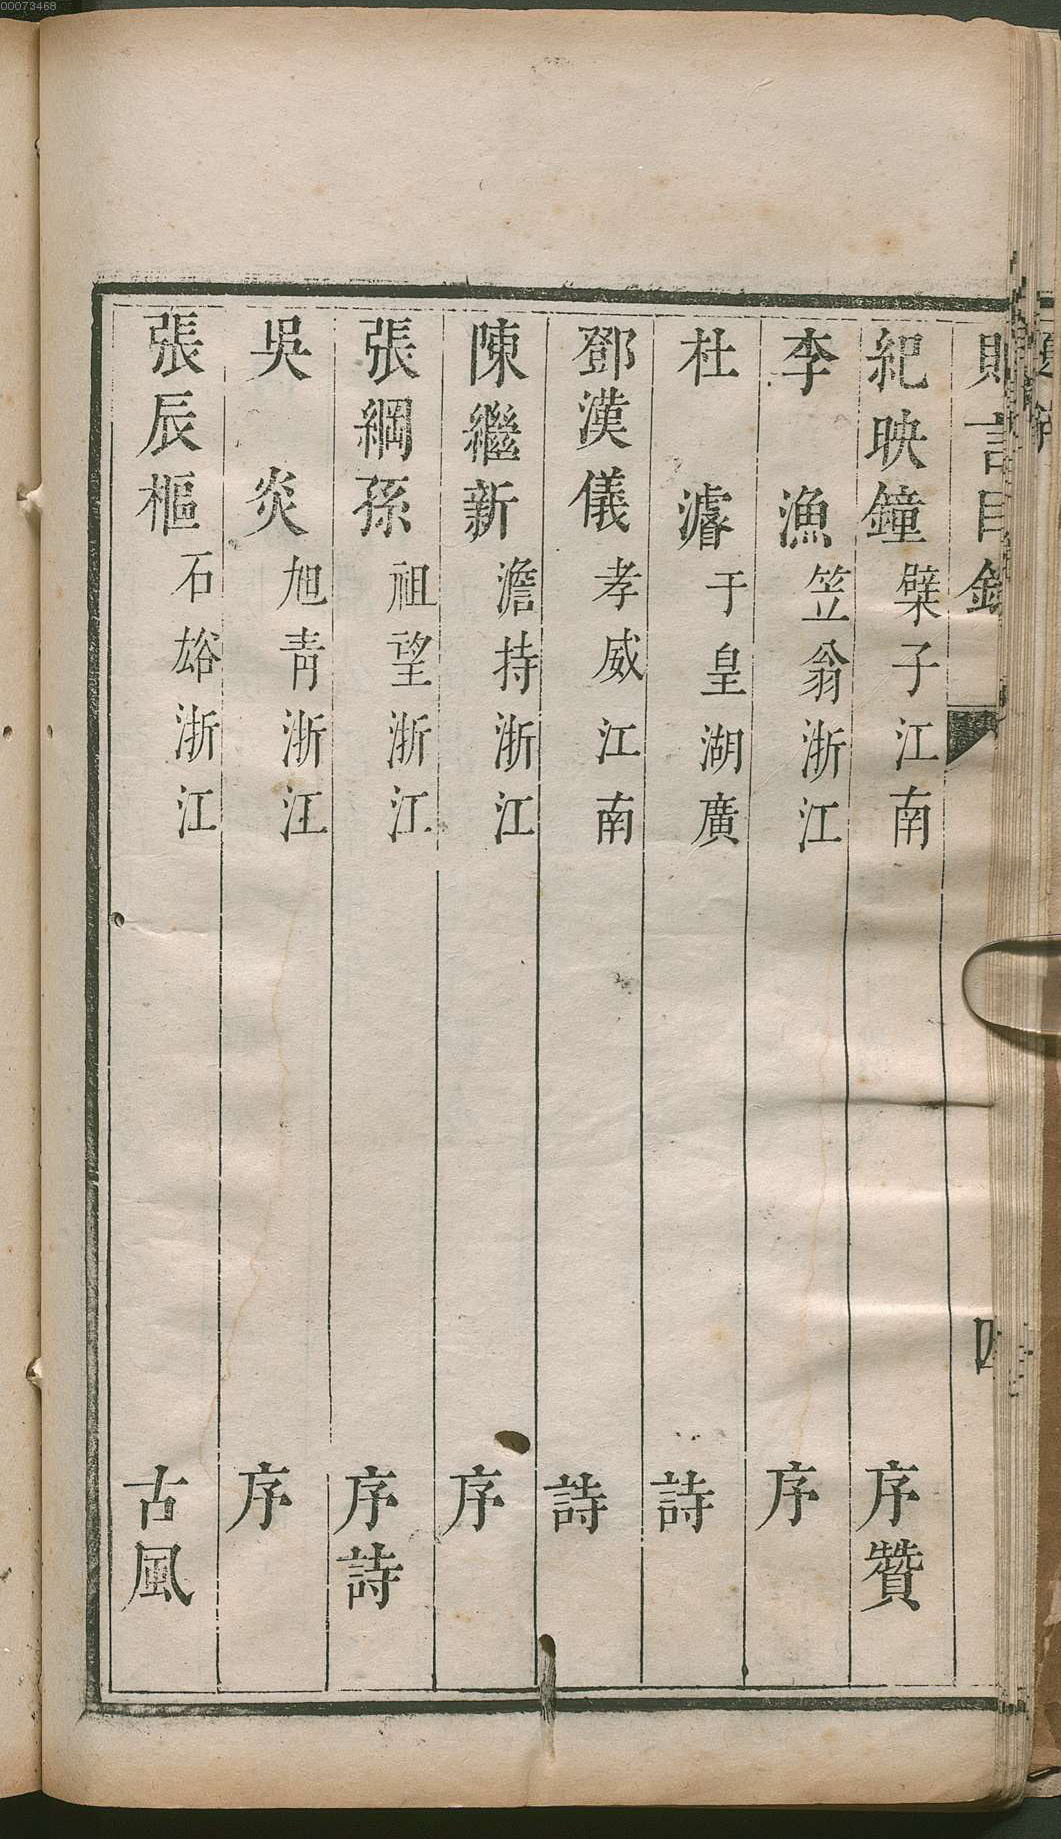 00073468
贈言目錄
四
紀映鐘 檗子 江南 序贊
李漁 笠翁 浙江 序
杜濬 于皇 湖廣 詩
鄧漢儀 孝威 江南 詩
陳繼新 澹持 浙江 序
張綱孫 祖望 浙江 序詩
吳炎 旭青 浙江 序
張辰樞 石谿 浙江 古風